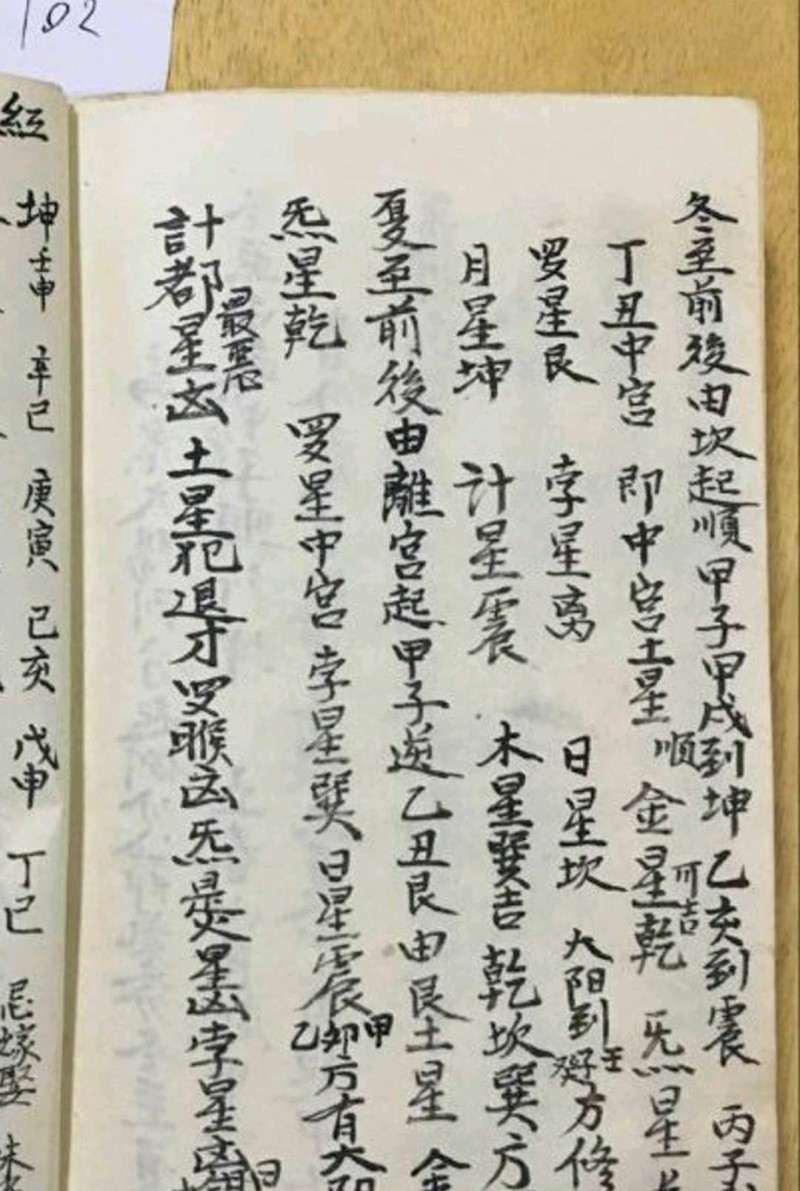 102
冬至前後由坎起順甲子甲戌到坤乙亥到震丙子
丁丑中宫即中宫土星順金星乾可吉炁星
罗星艮孛星离日星坎太阳到壬癸子方修
月星坤計星震木星巽吉乾坎巽方
夏至前後由離宫起甲子逆乙丑艮由艮土星金
炁星乾罗星中宫孛星巽日星震甲卯乙方有太阳
計都星最恶凶土星犯退才罗睺凶炁星凶孛星凶
紅
坤壬申辛巳庚寅己亥戊申丁巳忌嫁娶